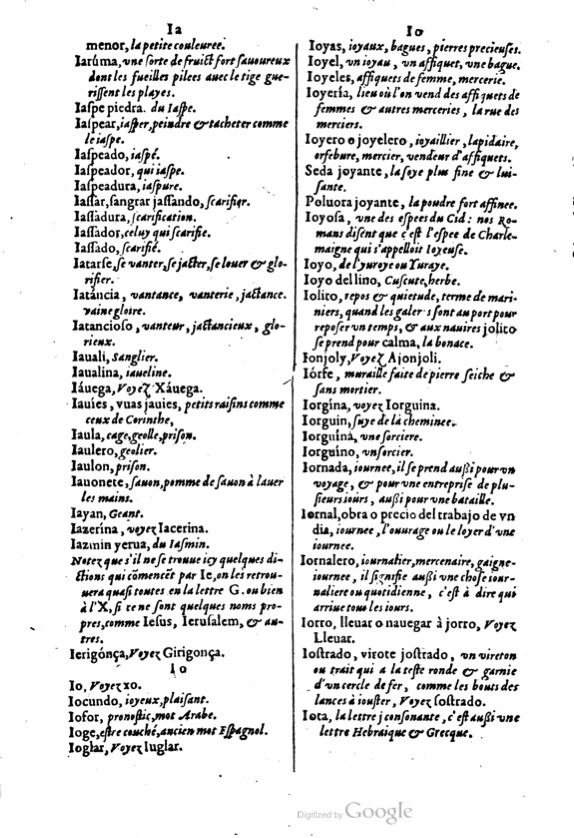 Ia
menor, la petite couleuree.
Iarúma, vne sorte de fruict fort sauoureux
dont les fueilles pilees auec le tige gue-
rissent les playes.
Iaspe piedra. du Iaspe.
Iaspear, iasper, peindre & tacheter comme
le iaspe.
Iaspeado, iaspé.
Iaspeador, qui iaspe.
Iaspeadura, iaspure.
Iassar, sangrar jassando, scarifier.
Iassadura, scarification.
Iassador, celuy qui scarifie.
Iassado, scarifié.
Iatarse, se vanter, se jacter, se louer & glo-
rifier.
Iatáncia, vantance, vanterie, jactance.
vaine gloire.
Iatancioso, vanteur, jactancieux, glo-
rieux.
Iauali, Sanglier.
Iaualina, iaueline.
Iáuega, Voyez Xáuega.
Iauíes, vuas jauies, petits raisins comme
ceux de Corinthe,
Iaula, cage, geolle, prison.
Iaulero, geolier.
Iaulon, prison.
Iauonete, sauon, pomme de sauon à lauer
les mains.
Iayan, Geant.
Iazerína, voyez Iacerina.
Iazmin yerua, du Iasmin.
Notez que s'il ne se trouue icy quelques di-
ctions qui cõmencẽt par Ie, on les retrou-
uera quasi toutes en la lettre G. ou bien
à l'X, si ce ne sont quelques noms pro-
pres, comme Iesus, Ierusalem, & au-
tres.
Ierigónça, Voyez Girigonça.
Io
Io, Voyez xo.
Iocundo, ioyeux, plaisant.
Iofor, pronostic, mot Arabe.
Ioge, estre couché, ancien mot Espagnol.
Ioglar, Voyez Iuglar.
Io
Ioyas, ioyaux, bagues, pierres precieuses.
Ioyel, vn ioyau, vn affiquet, vne bague.
Ioyeles, affiquets de femme, mercerie.
Ioyería, lieu où l'on vend des affiquets de
femmes & autres merceries, la rue des
merciers.
Ioyero o joyelero, ioyaillier, lapidaire,
orfebure, mercier, vendeur d'affiquets.
Seda joyante, la soye plus fine & lui-
sante.
Poluora joyante, la poudre fort affinee.
Ioyosa, vne des espees du Cid: nos Ro-
mans disent que c'est l'espee de Charle-
maigne qui s'appelloit Ioyeuse.
Ioyo, de l'yuroye ou Yuraye.
Ioyo del lino, Cuscute, herbe.
Iolito, repos & quietude, terme de mari-
niers, quand les galer s sont au port pour
reposer vn temps, & aux nauires jolito
se prend pour calma, la bonace.
Ionjoly, Voyez Ajonjoli.
Iórfe, muraille faite de pierre seiche &
sans mortier.
Iorgína, voyez Iorguina.
Iorguin, suye de la cheminee.
Iorguína, vne sorciere.
Iorguíno, vn sorcier.
Iornada, iournee, il se prend aussi pour vn
voyage, & pour vne entreprise de plu-
sieurs iours, aussi pour vne bataille.
Iornal, obra o precio del trabajo de vn
dia, iournee, l'ouurage ou le loyer d'vne
iournee.
Iornalero, iournalier, mercenaire, gaigne-
iournee, il signifie aussi vne chose iour-
naliere ou quotidienne, c'est à dire qui
arriue tous les iours.
Iorro, lleuar o nauegar à jorro, Voyez
Lleuar.
Iostrado, virote jostrado, vn vireton
ou trait qui a la teste ronde & garnie
d'vn cercle de fer, comme les bouts des
lances à iouster, Voyez sostrado.
Iota, la lettre j consonante, c'est aussi vne
lettre Hebraique & Grecque.
Digitized by Google